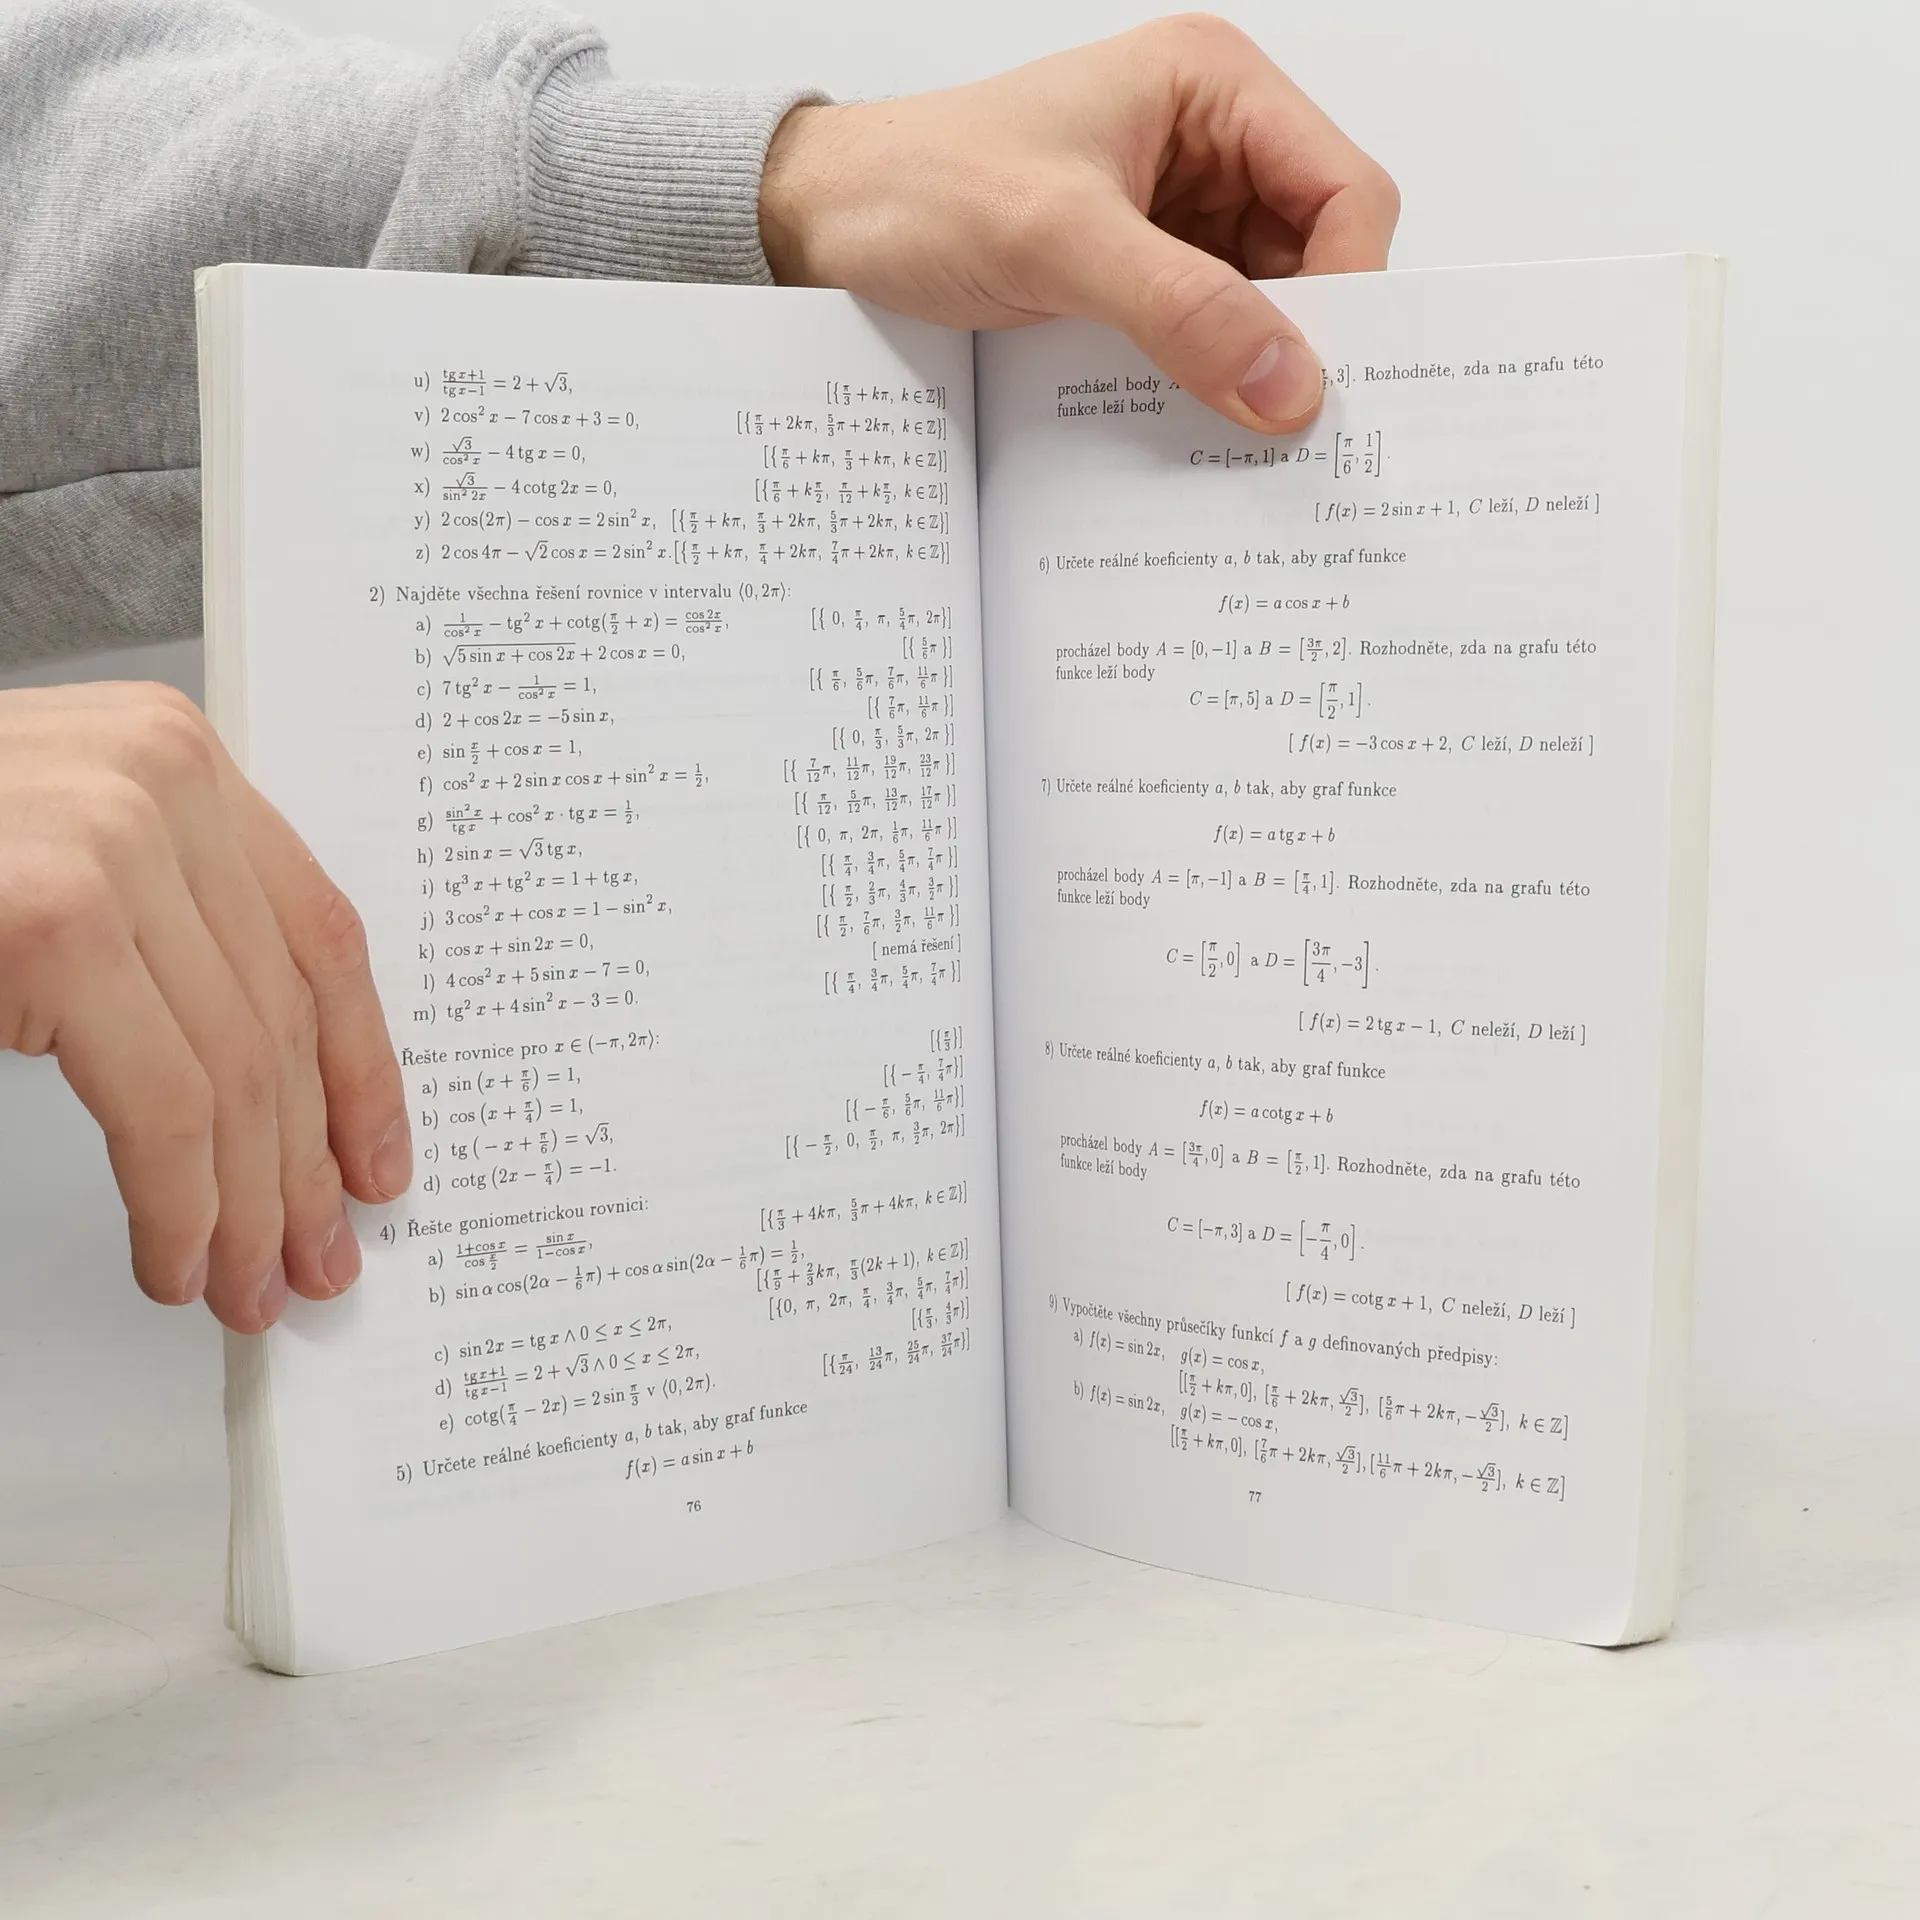 u) (tg x+1)/(tg x−1) = 2 + √3, [{π/3 + kπ, k ∈ ℤ}]
v) 2 cos² x − 7 cos x + 3 = 0, [{π/3 + 2kπ, 5/3π + 2kπ, k ∈ ℤ}]
w) √3/cos² x − 4 tg x = 0, [{π/6 + kπ, π/3 + kπ, k ∈ ℤ}]
x) √3/sin² 2x − 4 cotg 2x = 0, [{π/6 + kπ/2, π/12 + kπ/2, k ∈ ℤ}]
y) 2 cos(2π) − cos x = 2 sin² x, [{π/2 + kπ, π/3 + 2kπ, 5/3π + 2kπ, k ∈ ℤ}]
z) 2 cos 4π − √2 cos x = 2 sin² x. [{π/2 + kπ, π/4 + 2kπ, 7/4π + 2kπ, k ∈ ℤ}]
2) Najděte všechna řešení rovnice v intervalu ⟨0, 2π⟩:
a) 1/cos² x − tg² x + cotg(π/2 + x) = cos 2x/cos² x, [{ 0, π/4, π, 5/4π, 2π}]
b) √(5 sin x + cos 2x) + 2 cos x = 0, [{ 5/6π }]
c) 7 tg² x − 1/cos² x = 1, [{ π/6, 5/6π, 7/6π, 11/6π }]
d) 2 + cos 2x = −5 sin x, [{ 7/6π, 11/6π }]
e) sin x/2 + cos x = 1, [{ 0, π/3, 5/3π, 2π }]
f) cos² x + 2 sin x cos x + sin² x = 1/2, [{ 7/12π, 11/12π, 19/12π, 23/12π }]
g) sin² x/tg x + cos² x · tg x = 1/2, [{ π/12, 5/12π, 13/12π, 17/12π }]
h) 2 sin x = √3 tg x, [{ 0, π, 2π, 1/6π, 11/6π }]
i) tg³ x + tg² x = 1 + tg x, [{ π/4, 3/4π, 5/4π, 7/4π }]
j) 3 cos² x + cos x = 1 − sin² x, [{ π/2, 2/3π, 4/3π, 3/2π }]
k) cos x + sin 2x = 0, [{ π/2, 7/6π, 3/2π, 11/6π }]
l) 4 cos² x + 5 sin x − 7 = 0, [ nemá řešení ]
m) tg² x + 4 sin² x − 3 = 0. [{ π/4, 3/4π, 5/4π, 7/4π }]
Řešte rovnice pro x ∈ (−π, 2π⟩:
a) sin (x + π/6) = 1, [{π/3}]
b) cos (x + π/4) = 1, [{ − π/4, 7/4π}]
c) tg ( − x + π/6) = √3, [{ − π/6, 5/6π, 11/6π}]
d) cotg (2x − π/4) = −1. [{ − π/2, 0, π/2, π, 3/2π, 2π}]
4) Řešte goniometrickou rovnici:
a) (1+cos x)/(cos x/2) = sin x/(1−cos x), [{π/3 + 4kπ, 5/3π + 4kπ, k ∈ ℤ}]
b) sin α cos(2α − 1/6π) + cos α sin(2α − 1/6π) = 1/2,
[{π/9 + 2/3kπ, π/3(2k + 1), k ∈ ℤ}]
c) sin 2x = tg x ∧ 0 ≤ x ≤ 2π, [{0, π, 2π, π/4, 3/4π, 5/4π, 7/4π}]
d) (tg x+1)/(tg x−1) = 2 + √3 ∧ 0 ≤ x ≤ 2π, [{π/3, 4/3π}]
e) cotg(π/4 − 2x) = 2 sin π/3 v ⟨0, 2π). [{π/24, 13/24π, 25/24π, 37/24π}]
5) Určete reálné koeficienty a, b tak, aby graf funkce
f(x) = a sin x + b
76
procházel body , 3]. Rozhodněte, zda na grafu této
funkce leží body
C = [−π, 1] a D = [π/6, 1/2].
[ f(x) = 2 sin x + 1, C leží, D neleží ]
6) Určete reálné koeficienty a, b tak, aby graf funkce
f(x) = a cos x + b
procházel body A = [0, −1] a B = [3π/2, 2]. Rozhodněte, zda na grafu této
funkce leží body
C = [π, 5] a D = [π/2, 1].
[ f(x) = −3 cos x + 2, C leží, D neleží ]
7) Určete reálné koeficienty a, b tak, aby graf funkce
f(x) = a tg x + b
procházel body A = [π, −1] a B = [π/4, 1]. Rozhodněte, zda na grafu této
funkce leží body
C = [π/2, 0] a D = [3π/4, −3].
[ f(x) = 2 tg x − 1, C neleží, D leží ]
8) Určete reálné koeficienty a, b tak, aby graf funkce
f(x) = a cotg x + b
procházel body A = [3π/4, 0] a B = [π/2, 1]. Rozhodněte, zda na grafu této
funkce leží body
C = [−π, 3] a D = [−π/4, 0].
[ f(x) = cotg x + 1, C neleží, D leží ]
9) Vypočtěte všechny průsečíky funkcí f a g definovaných předpisy:
a) f(x) = sin 2x, g(x) = cos x,
[[π/2 + kπ, 0], [π/6 + 2kπ, √3/2], [5/6π + 2kπ, −√3/2], k ∈ ℤ]
b) f(x) = sin 2x, g(x) = − cos x,
[[π/2 + kπ, 0], [7/6π + 2kπ, √3/2], [11/6π + 2kπ, −√3/2], k ∈ ℤ]
77